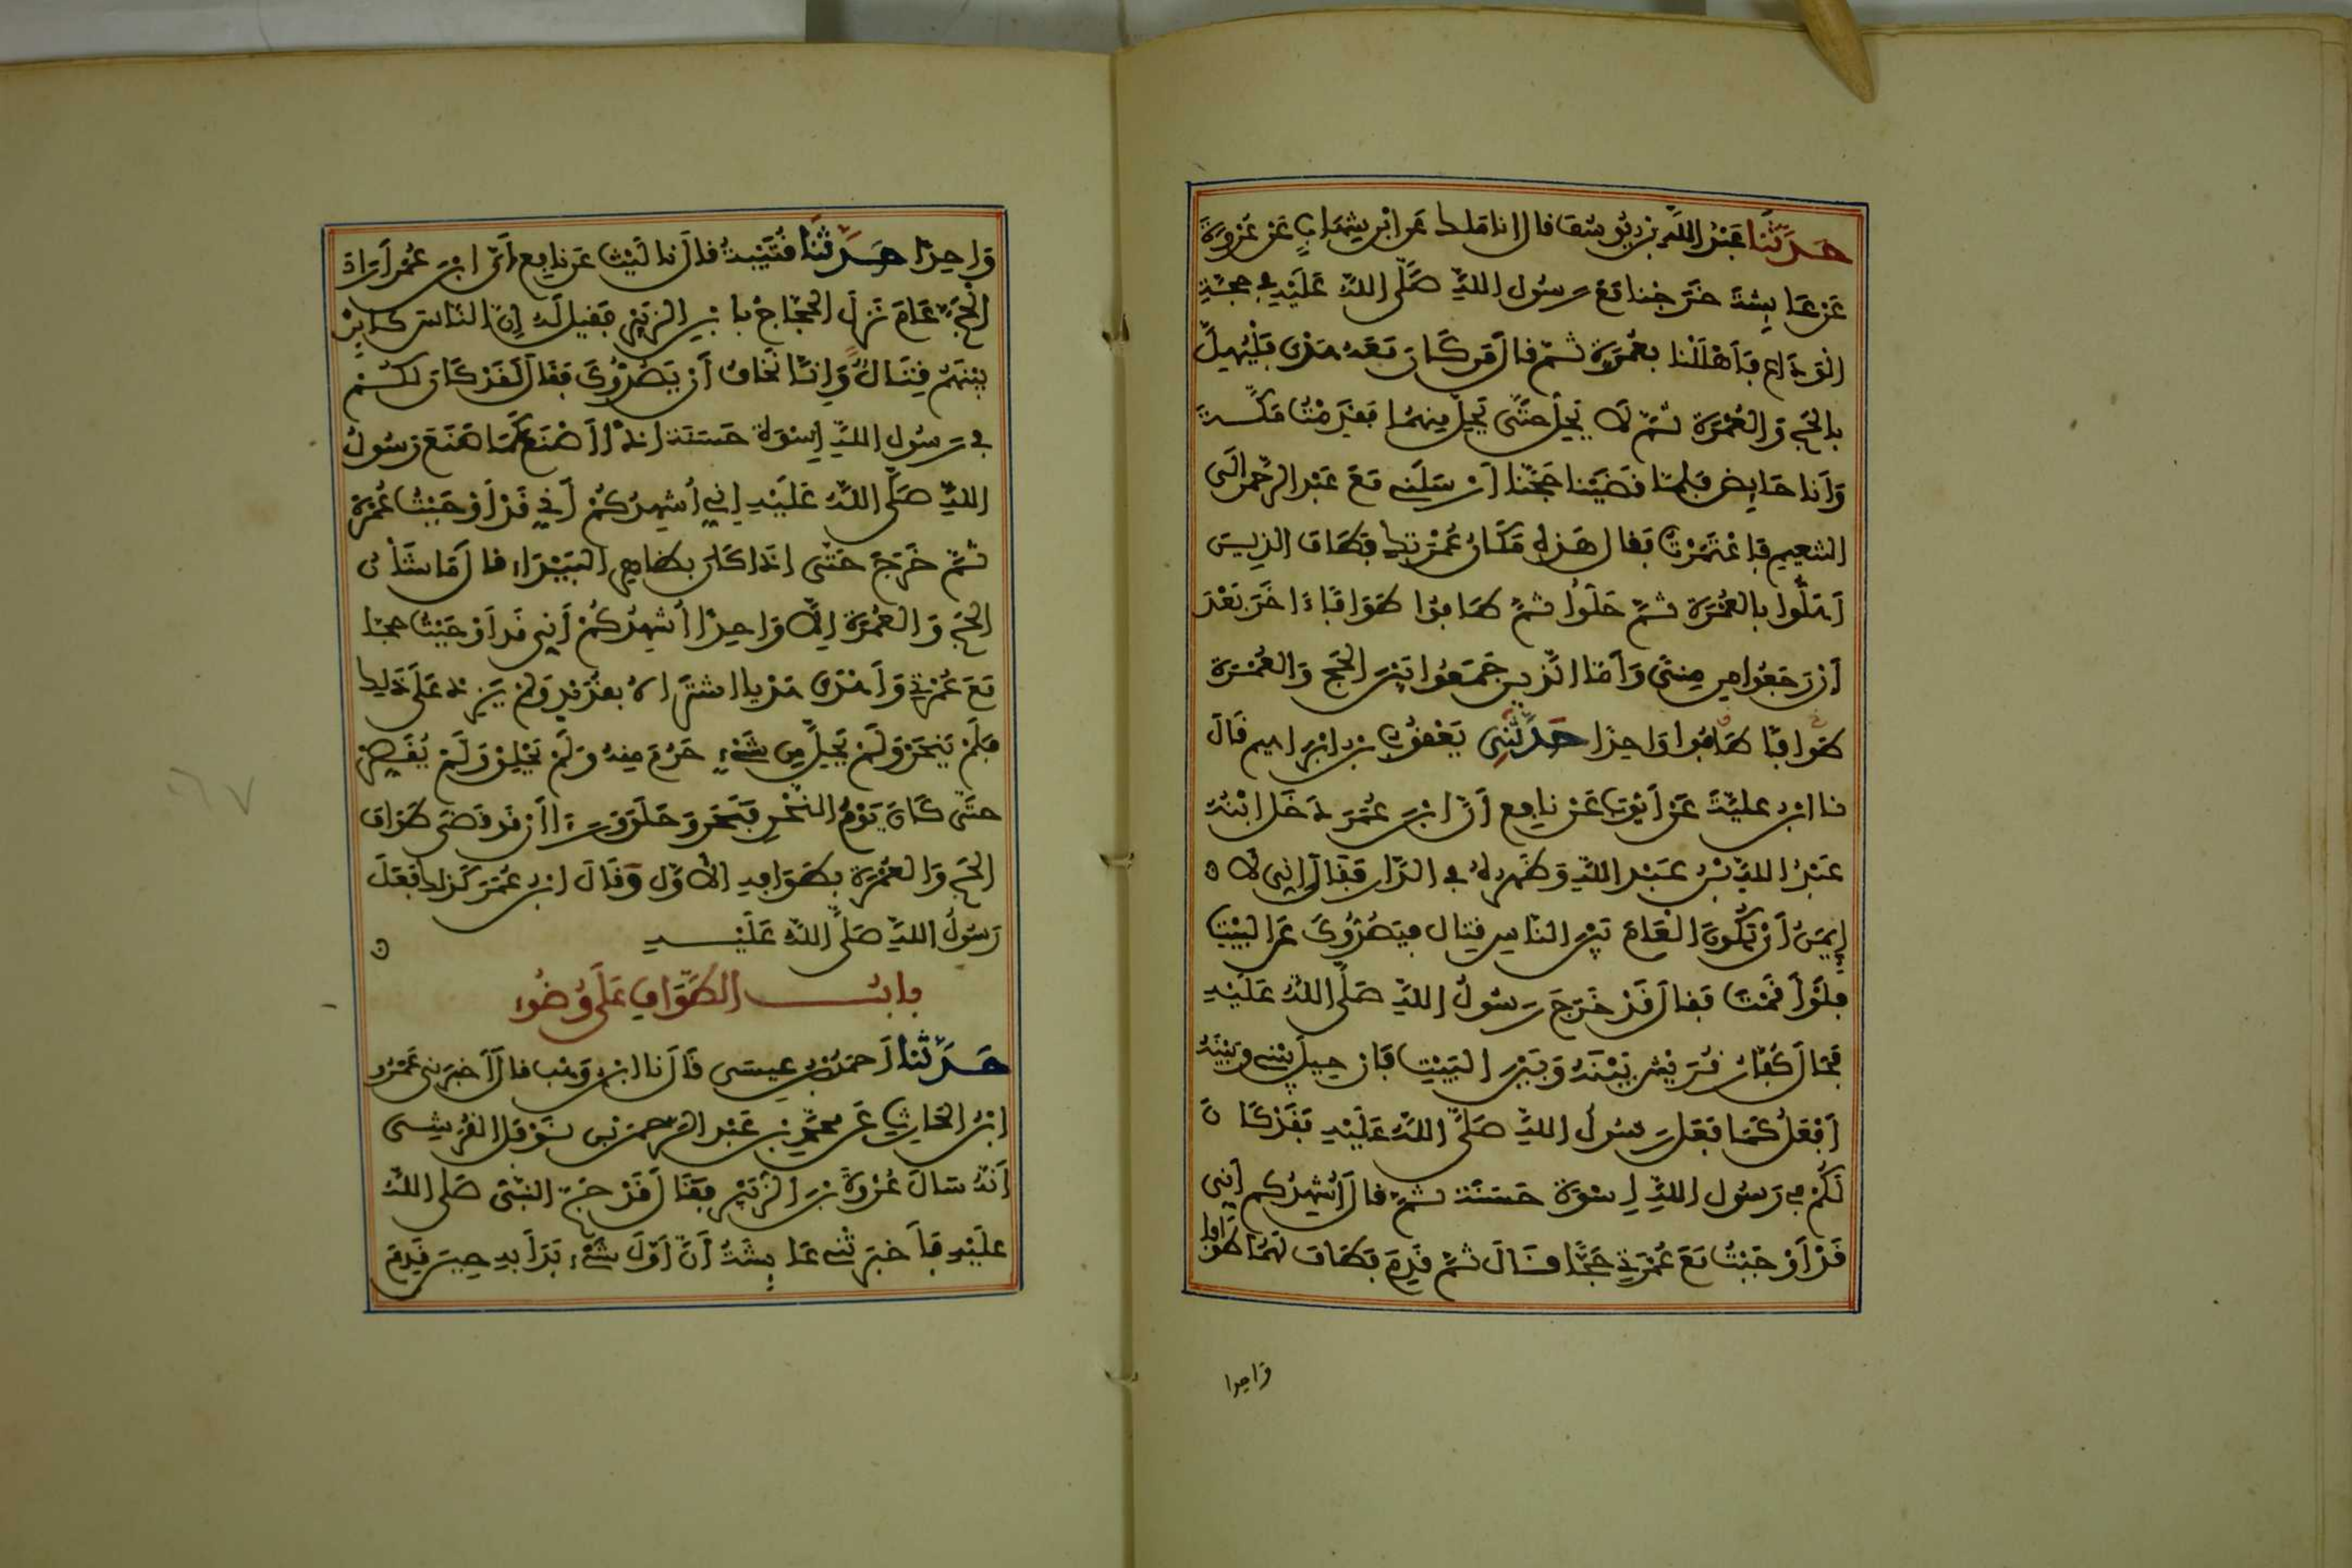 حَدَّثَنَا عَبْدُ اللَّهِ بْنُ يُوسُفَ قال انا مَلك عَنِ ابْنِ شِهَابٍ عَنْ عُرْوَةَ
عَنْ عَايِشَةَ خَرَجْنا مَعَ رَسُولِ اللَّهِ صَلَّى اللَّهُ عَلَيْهِ فِي حَجَّةِ
الْوَدَاعِ فَأَهْلَلْنا بِعُمْرَةٍ ثُمَّ قال مَن كَانَ مَعَهُ هَدْىٌ فَلْيُهِلَّ
بِالْحَجِّ وَالْعُمْرَةِ ثُمَّ لَا يَحِلَّ حَتَّى يَحِلَّ مِنْهُمَا فَقَدِمْتُ مَكَّةَ
وَأَنَا حَايِض فَلَمَّا قَضَيْنا حَجَّنا أَرْسَلَنِي مَعَ عَبْدِ الرَّحْمٰنِ الَى
التنعيم فَاعْتَمَرْتُ فقال هَذِهِ مَكَانَ عُمْرَتِكِ فَطَافَ الذِينَ
أَهَلُّوا بِالْعُمْرَةِ ثُمَّ حَلُّوا ثُمَّ طَافُوا طَوَافًا ءَاخَرَ بَعْدَ
أَنْ رَجَعُوا مِن مِنًى وَأَمَّا الَّذِينَ جَمَعُوا بَيْنَ الْحَجِّ وَالْعُمْرَةِ
طَوَافًا طَافُوا وَاحِدًا حَدَّثَنِي يَعْقُوبُ بْنُ ابْرَاهِيم قَالَ
نا ابْنُ عُلَيَّةَ عَنْ أَيُّوبَ عَنْ نافِع أَنَّ ابْنَ عُمَرَ دَخَلَ ابْنُهُ
عَبْدُ اللَّهِ بْنُ عَبْدِ اللَّهِ وَظَهْرُهُ فِي الدَّارِ فَقَالَ إِنِّي لَا
إِيمَنُ أَنْ تَكُونَ الْعَامَ بَيْنَ النَّاسِ قِتال فيَصُدُّوكَ عَنِ الْبَيْتِ
فَلَوْ أَقَمْتَ فَقَالَ قَدْ خَرَجَ رَسُولُ اللَّهِ صَلَّى اللَّهُ عَلَيْهِ
فَحَالَ كُفَّارُ قُرَيْشٍ بَيْنَهُ وَبَيْنَ الْبَيْتِ فَإِنْ حِيلَ بَيْنِي وَبَيْنَهُ
أَفْعَلُ كَمَا فَعَلَ رَسُولُ اللَّهِ صَلَّى اللَّهُ عَلَيْهِ فَقَدْ كَانَ
لَكُمْ فِي رَسُولِ اللَّهِ إِسْوَة حَسَنَة ثُمَّ قَالَ أُشْهِدُكُم إِنِّي
قَدْ أَوْجَبْتُ مَعَ عُمْرَتِي حَجًّا قَالَ ثُمَّ قَدِمَ فَطَافَ لَهُمَا طَوَافا
وَاحِدا
وَاحِدًا حَدَّثَنَا قُتَيْبَةُ قال نا لَيْث عَن نافِع أَنَّ ابْنَ عُمَرَ أَرَادَ
الْحَجَّ عَامَ نَزَلَ الْحَجَّاجُ بِابْنِ الزُّبَيْرِ فَقِيلَ لَهُ إِنَّ النَّاسَ كَايِنٌ
بَيْنَهُمْ قِتَالٌ وَإِنَّا نَخَافُ أَنْ يَصُدُّوكَ فَقَالَ لَقَدْ كَانَ لَكُمْ
فِي رَسُولِ اللَّهِ إِسْوَة حَسَنَة إِذًا أَصْنَع كَمَا صَنَعَ رَسُولُ
اللَّهِ صَلَّى اللَّهُ عَلَيْهِ إِنِّي أُشْهِدُكُمْ أَنِّي قَدْ أَوْجَبْتُ عُمْرَةً
ثُمَّ خَرَجَ حَتَّى إِذَا كَانَ بِظَاهِرِ الْبَيْدَاءِ قَالَ مَا شَأْنُ
الْحَجِّ وَالْعُمْرَةِ إِلَّا وَاحِدًا أُشْهِدُكُمْ أَنِّي قَد أَوْجَبْتُ حجّا
مَعَ عُمْرَتِي وَأَهْدَى هَدْيا اشْتَرَاهُ بِقُدَيْدٍ وَلَمْ يَزِدْ عَلَى ذَلِك
فَلَمْ يَنْحَرْ وَلَمْ يَحِلَّ مِن شَيْءٍ حَرُمَ مِنْهُ وَلَمْ يَحْلِقْ وَلَمْ يُقَصِّرْ
حَتَّى كَانَ يَوْمُ النَّحْرِ فَنَحَرَ وَحَلَقَ وَرَءَا أَن قَد قَضَى طَوَافَ
الْحَجِّ وَالْعُمْرَةِ بِطَوَافِهِ الْأَوَّلِ وَقَالَ ابْنُ عُمَرَ كَذلك فَعَلَ
رَسُولُ اللَّهِ صَلَّى اللَّهُ عَلَيْهِ
بابُ الطَّوَافِ عَلَى وُضُوءٍ
حَدَّثَنَا أَحْمَدُ بْنُ عِيسَى قَالَ نا ابْنُ وَهْب قال أَخْبَرَنِي عَمْرُو
ابْنُ الْحَارِثِ عَنْ مُحَمَّدِ بْنِ عَبْدِ الرَّحْمَنِ بْنِ نَوْفَلٍ الْقُرَشِي
أَنَّهُ سَالَ عُرْوَةَ بْنَ الزُّبَيْرِ فَقَالَ قَدْ حَجَّ النَّبِيُّ صَلَّى اللَّهُ
عَلَيْهِ فَأَخْبَرَتْنِي عَايِشَةُ أَنَّ أَوَّلَ شَيْءٍ بَدَأَ بِهِ حِينَ قَدِمَ